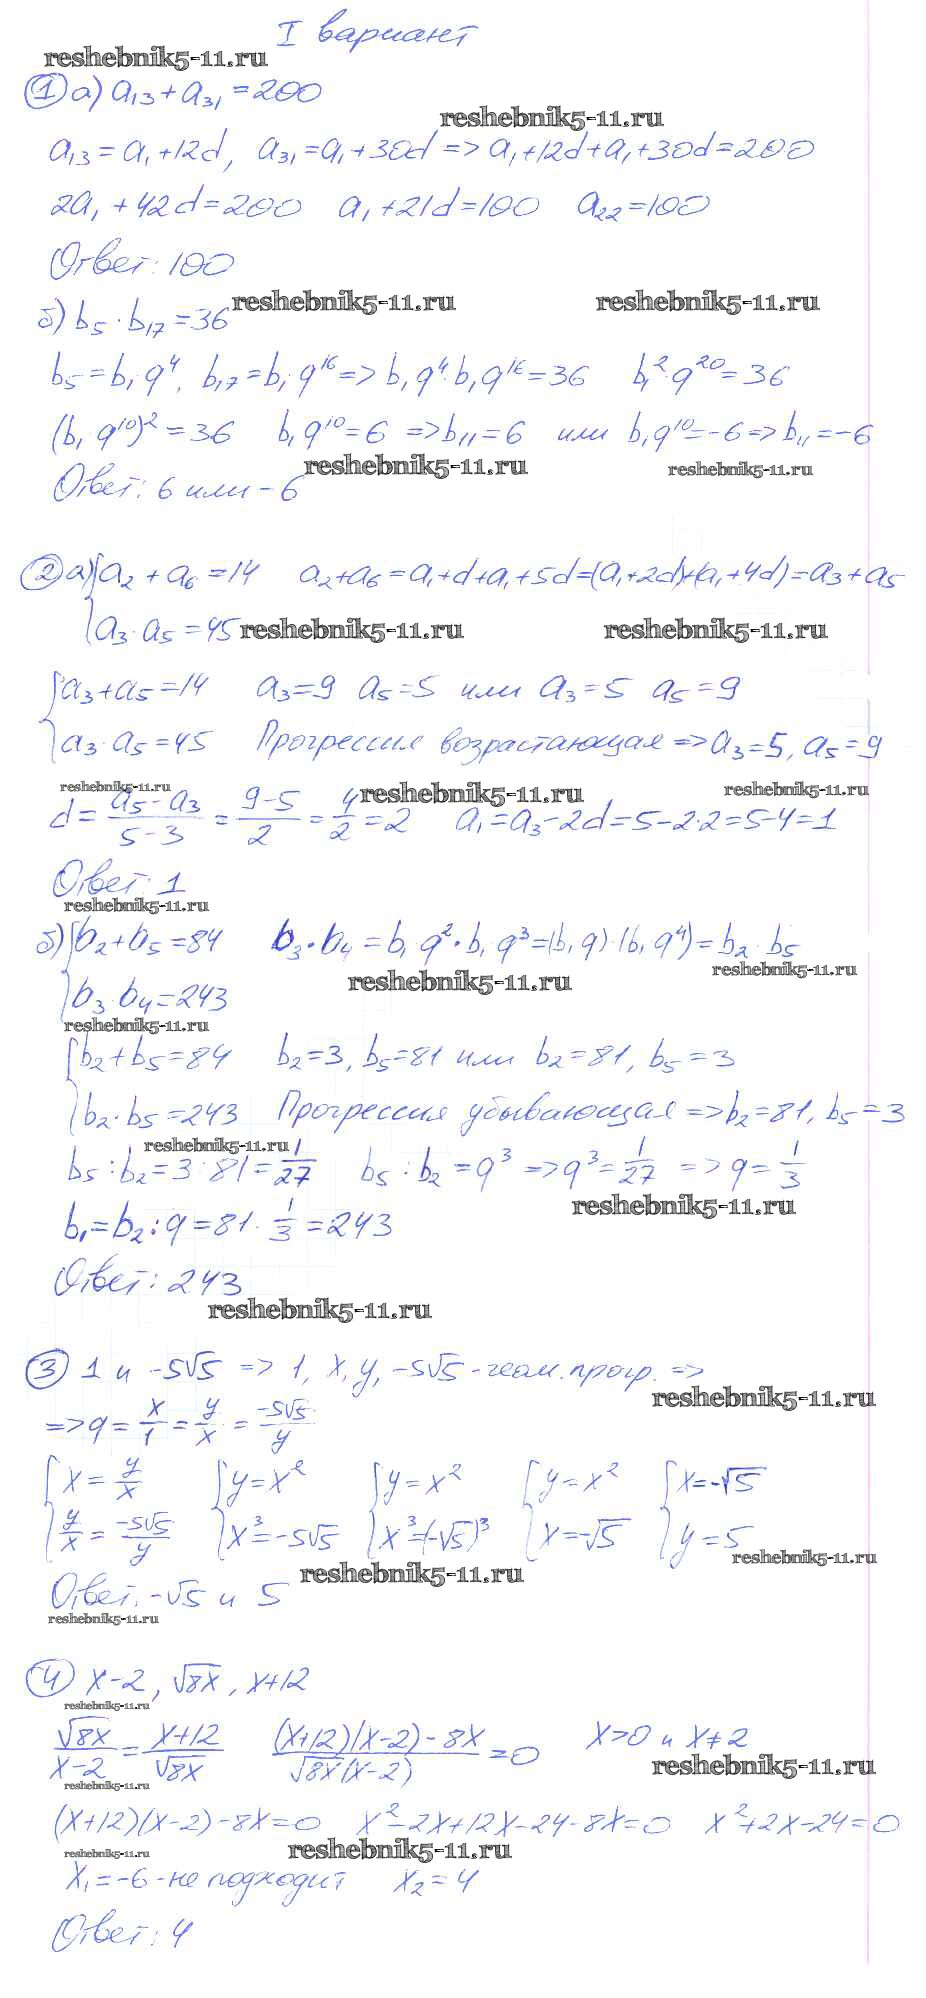 I вариант
reshebnik5-11.ru
① а) a₁₃ + a₃₁ = 200
reshebnik5-11.ru
a₁₃ = a₁ + 12d, a₃₁ = a₁ + 30d => a₁ + 12d + a₁ + 30d = 200
2a₁ + 42d = 200 a₁ + 21d = 100 a₂₂ = 100
Ответ: 100
reshebnik5-11.ru reshebnik5-11.ru
б) b₅ · b₁₇ = 36
b₅ = b₁q⁴, b₁₇ = b₁q¹⁶ => b₁q⁴·b₁q¹⁶ = 36 b₁²·q²⁰ = 36
(b₁q¹⁰)² = 36 b₁q¹⁰ = 6 => b₁₁ = 6 или b₁q¹⁰ = -6 => b₁₁ = -6
reshebnik5-11.ru reshebnik5-11.ru
Ответ: 6 или -6
② а) { a₂ + a₆ = 14 a₂ + a₆ = a₁ + d + a₁ + 5d = (a₁ + 2d) + (a₁ + 4d) = a₃ + a₅
a₃ · a₅ = 45 reshebnik5-11.ru reshebnik5-11.ru
{ a₃ + a₅ = 14 a₃ = 9 a₅ = 5 или a₃ = 5 a₅ = 9
a₃ · a₅ = 45 Прогрессия возрастающая => a₃ = 5, a₅ = 9
reshebnik5-11.ru reshebnik5-11.ru reshebnik5-11.ru
d = (a₅ - a₃)/(5 - 3) = (9 - 5)/2 = 4/2 = 2 a₁ = a₃ - 2d = 5 - 2·2 = 5 - 4 = 1
Ответ: 1
reshebnik5-11.ru
б) { b₂ + b₅ = 84 b₃ · b₄ = b₁q² · b₁q³ = (b₁q)·(b₁q⁴) = b₂ · b₅
reshebnik5-11.ru reshebnik5-11.ru
b₃ · b₄ = 243
reshebnik5-11.ru
{ b₂ + b₅ = 84 b₂ = 3, b₅ = 81 или b₂ = 81, b₅ = 3
b₂ · b₅ = 243 Прогрессия убывающая => b₂ = 81, b₅ = 3
reshebnik5-11.ru
b₅ : b₂ = 3 : 81 = 1/27 b₅ : b₂ = q³ => q³ = 1/27 => q = 1/3
reshebnik5-11.ru
b₁ = b₂ : q = 81 · 1/3 = 243
Ответ: 243
reshebnik5-11.ru
③ 1 и -5√5 => 1, x, y, -5√5 - геом. прогр. =>
reshebnik5-11.ru
=> q = x/1 = y/x = -5√5/y
{ x = y/x { y = x² { y = x² { y = x² { x = -√5
y/x = -5√5/y x³ = -5√5 x³ = (-√5)³ x = -√5 y = 5
reshebnik5-11.ru reshebnik5-11.ru
Ответ: -√5 и 5
reshebnik5-11.ru
④ x - 2, √8x, x + 12
reshebnik5-11.ru
√8x/(x - 2) = (x + 12)/√8x ((x + 12)(x - 2) - 8x)/(√8x(x - 2)) = 0 x > 0 и x ≠ 2
reshebnik5-11.ru reshebnik5-11.ru
(x + 12)(x - 2) - 8x = 0 x² - 2x + 12x - 24 - 8x = 0 x² + 2x - 24 = 0
reshebnik5-11.ru reshebnik5-11.ru
x₁ = -6 - не подходит x₂ = 4
Ответ: 4